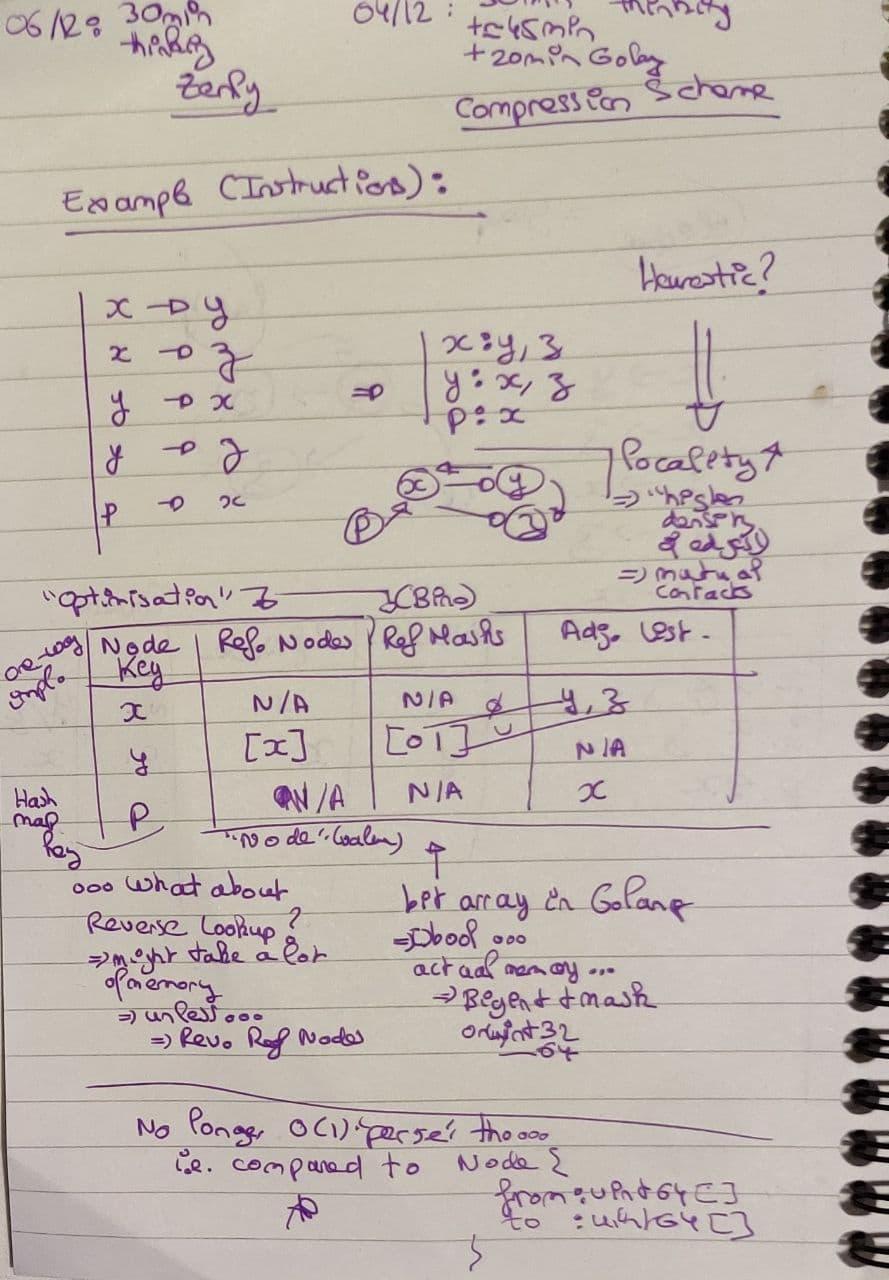 06/12: 30min
thinking
Zenly
04/12: thinking
+ 45min
+ 20min Golang
Compression Scheme
Example (Instructions):
Heurestic?
x → y
x → z
y → x
y → z
p → x
⇒
x: y, z
y: x, z
p: x
x y
p z
locality ↑
⇒ "higher
density
of edges)
⇒ mutual
contacts
"Optimisation"
Node Key | Ref. Nodes | Ref Masks | Adj. List.
x | N/A | N/A | y, z
y | [x] | [01] | N/A
P | N/A | N/A | x
Hash
map
key
"Node" (value)
ooo What about
Reverse Lookup?
⇒ might take a lot
of memory
⇒ unless ooo
⇒ Rev. Ref Nodes
bit array in Golang
⇒ bool ooo
actual memory ...
⇒ Bigint + mask
or uint32
64
No longer O(1) "per se" tho ooo
i.e. compared to Node {
from: uint64 []
to : uint64 []
}